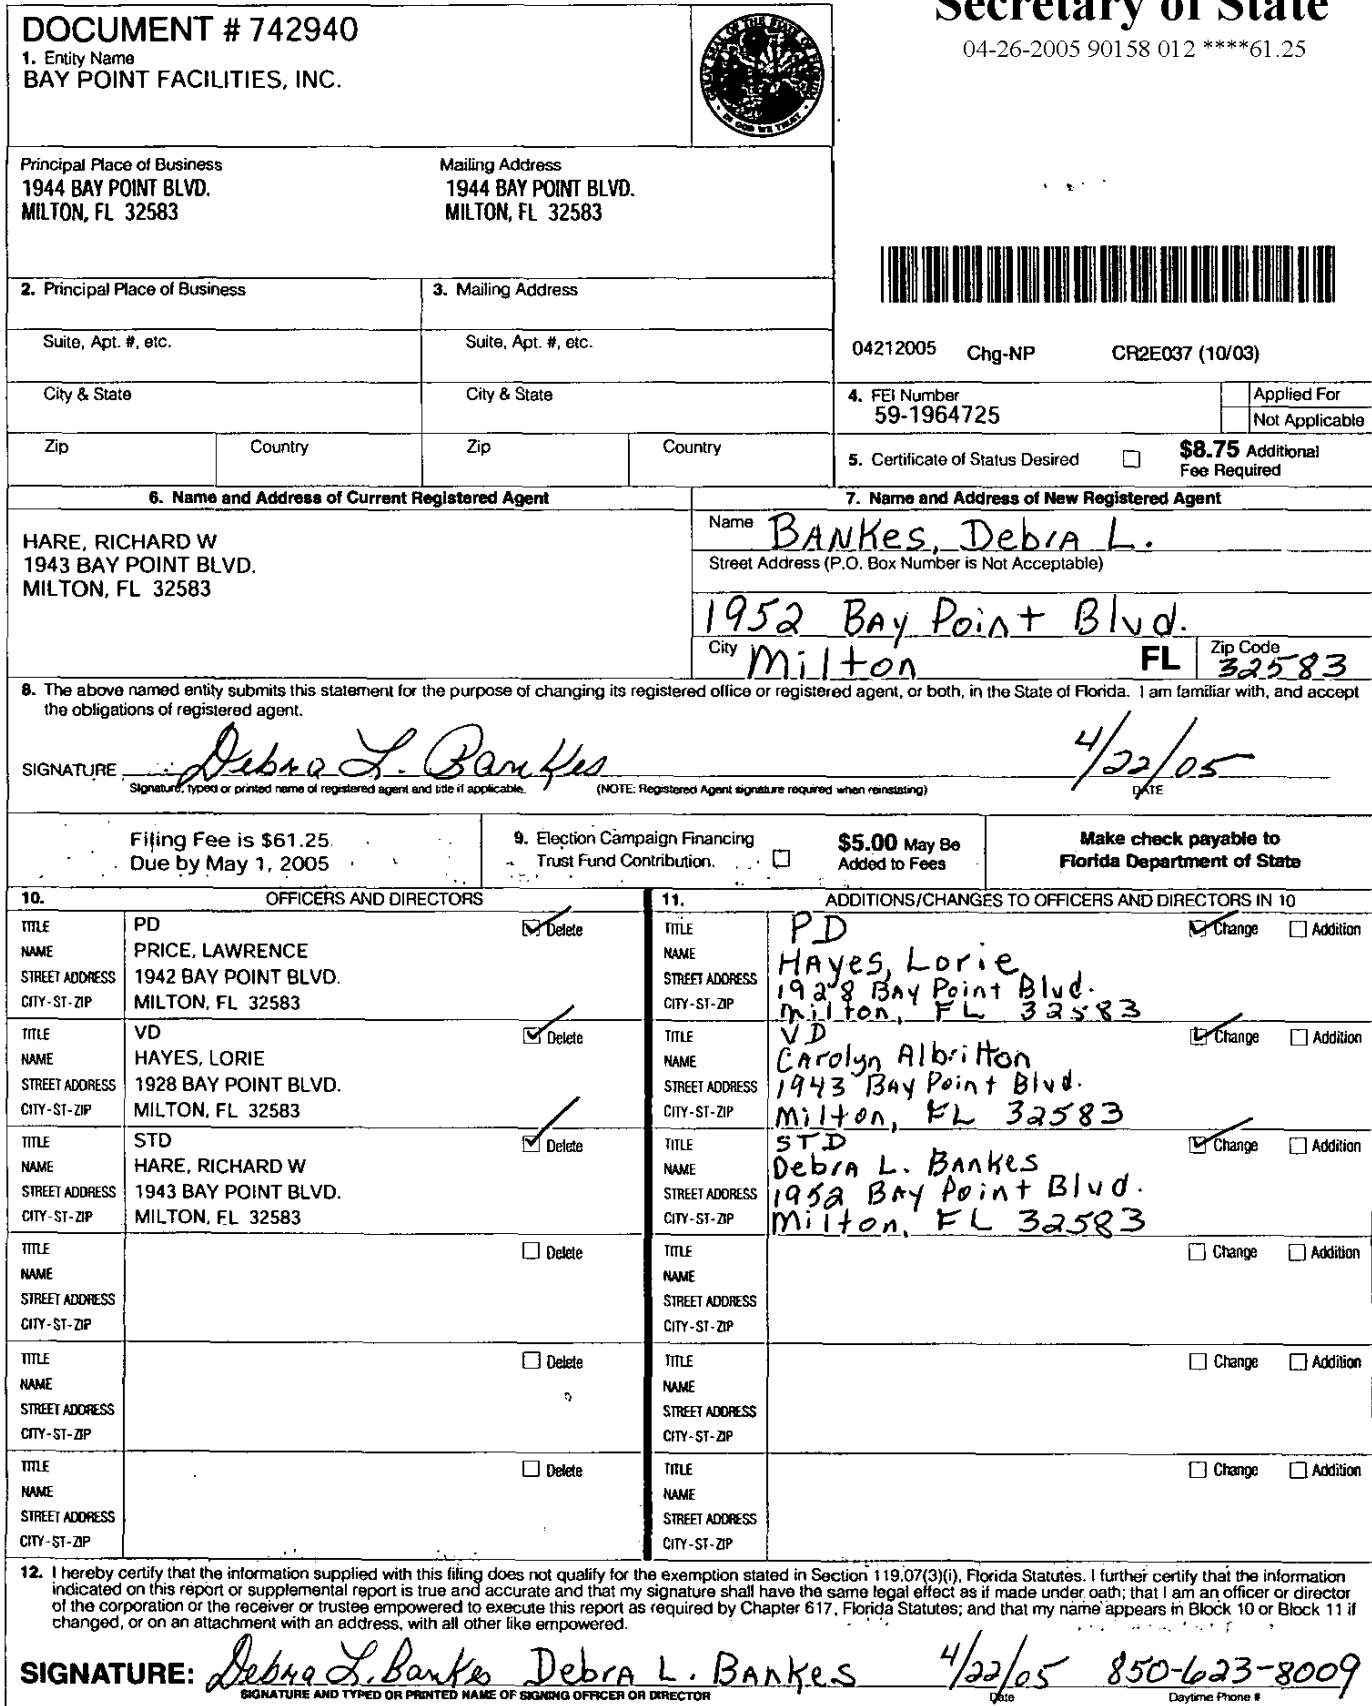 Secretary of State
04-26-2005 90158 012 ****61.25
DOCUMENT # 742940
1. Entity Name
BAY POINT FACILITIES, INC.
Principal Place of Business
1944 BAY POINT BLVD.
MILTON, FL 32583
Mailing Address
1944 BAY POINT BLVD.
MILTON, FL 32583
2. Principal Place of Business
3. Mailing Address
Suite, Apt. #, etc.
Suite, Apt. #, etc.
04212005 Chg-NP CR2E037 (10/03)
City & State
City & State
4. FEI Number
59-1964725
Applied For
Not Applicable
Zip Country
Zip Country
5. Certificate of Status Desired
$8.75 Additional
Fee Required
6. Name and Address of Current Registered Agent
HARE, RICHARD W
1943 BAY POINT BLVD.
MILTON, FL 32583
7. Name and Address of New Registered Agent
Name BANKes, DebrA L.
Street Address (P.O. Box Number is Not Acceptable)
1952 BAy Point Blvd.
City Milton FL Zip Code 32583
8. The above named entity submits this statement for the purpose of changing its registered office or registered agent, or both, in the State of Florida. I am familiar with, and accept
the obligations of registered agent.
SIGNATURE Debra L. Bankes 4/22/05
Signature, typed or printed name of registered agent and title if applicable. (NOTE: Registered Agent signature required when reinstating) DATE
Filing Fee is $61.25
Due by May 1, 2005
9. Election Campaign Financing
Trust Fund Contribution.
$5.00 May Be
Added to Fees
Make check payable to
Florida Department of State
10. OFFICERS AND DIRECTORS
11. ADDITIONS/CHANGES TO OFFICERS AND DIRECTORS IN 10
TITLE PD Delete
NAME PRICE, LAWRENCE
STREET ADDRESS 1942 BAY POINT BLVD.
CITY-ST-ZIP MILTON, FL 32583
TITLE PD Change Addition
NAME HAyes, Lorie
STREET ADDRESS 1928 BAy Point Blvd.
CITY-ST-ZIP Milton, FL 32583
TITLE VD Delete
NAME HAYES, LORIE
STREET ADDRESS 1928 BAY POINT BLVD.
CITY-ST-ZIP MILTON, FL 32583
TITLE VD Change Addition
NAME CArolyn Albritton
STREET ADDRESS 1943 BAy Point Blvd.
CITY-ST-ZIP Milton, FL 32583
TITLE STD Delete
NAME HARE, RICHARD W
STREET ADDRESS 1943 BAY POINT BLVD.
CITY-ST-ZIP MILTON, FL 32583
TITLE STD Change Addition
NAME DebrA L. BANKes
STREET ADDRESS 1952 BAy Point Blvd.
CITY-ST-ZIP Milton, FL 32583
TITLE Delete
NAME
STREET ADDRESS
CITY-ST-ZIP
TITLE Change Addition
NAME
STREET ADDRESS
CITY-ST-ZIP
TITLE Delete
NAME
STREET ADDRESS
CITY-ST-ZIP
TITLE Change Addition
NAME
STREET ADDRESS
CITY-ST-ZIP
TITLE Delete
NAME
STREET ADDRESS
CITY-ST-ZIP
TITLE Change Addition
NAME
STREET ADDRESS
CITY-ST-ZIP
12. I hereby certify that the information supplied with this filing does not qualify for the exemption stated in Section 119.07(3)(i), Florida Statutes. I further certify that the information
indicated on this report or supplemental report is true and accurate and that my signature shall have the same legal effect as if made under oath; that I am an officer or director
of the corporation or the receiver or trustee empowered to execute this report as required by Chapter 617, Florida Statutes; and that my name appears in Block 10 or Block 11 if
changed, or on an attachment with an address, with all other like empowered.
SIGNATURE: Debra L. Bankes DebrA L. BANKes 4/22/05 850-623-8009
SIGNATURE AND TYPED OR PRINTED NAME OF SIGNING OFFICER OR DIRECTOR Date Daytime Phone #